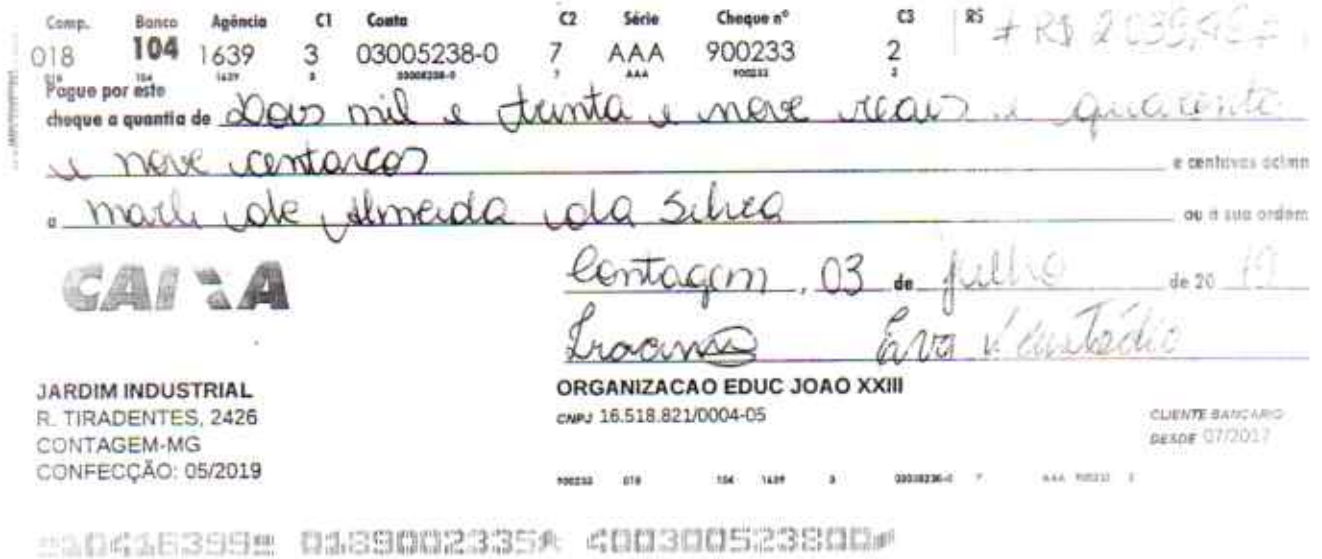 Comp. Banco Agência C1 Conta C2 Série Cheque nº C3 R$ # R$ 2 039,49 #
018 104 1639 3 03005238-0 7 AAA 900233 2
018 104 1639 3 03005238-0 7 AAA 900233 2
Pague por este
cheque a quantia de Dois mil e trinta e nove reais e quarenta
e nove centavos e centavos acima
a Marli de Almeida da Silva ou à sua ordem
CAIXA
Contagem, 03 de julho de 20 19
Eva
JARDIM INDUSTRIAL
R. TIRADENTES, 2426
CONTAGEM-MG
CONFECÇÃO: 05/2019
ORGANIZACAO EDUC JOAO XXIII
CNPJ 16.518.821/0004-05
CLIENTE BANCÁRIO
DESDE 07/2017
900233 018 104 1639 3 03005238-0 7 AAA 900233 2
10416399 0189002335 400300523800